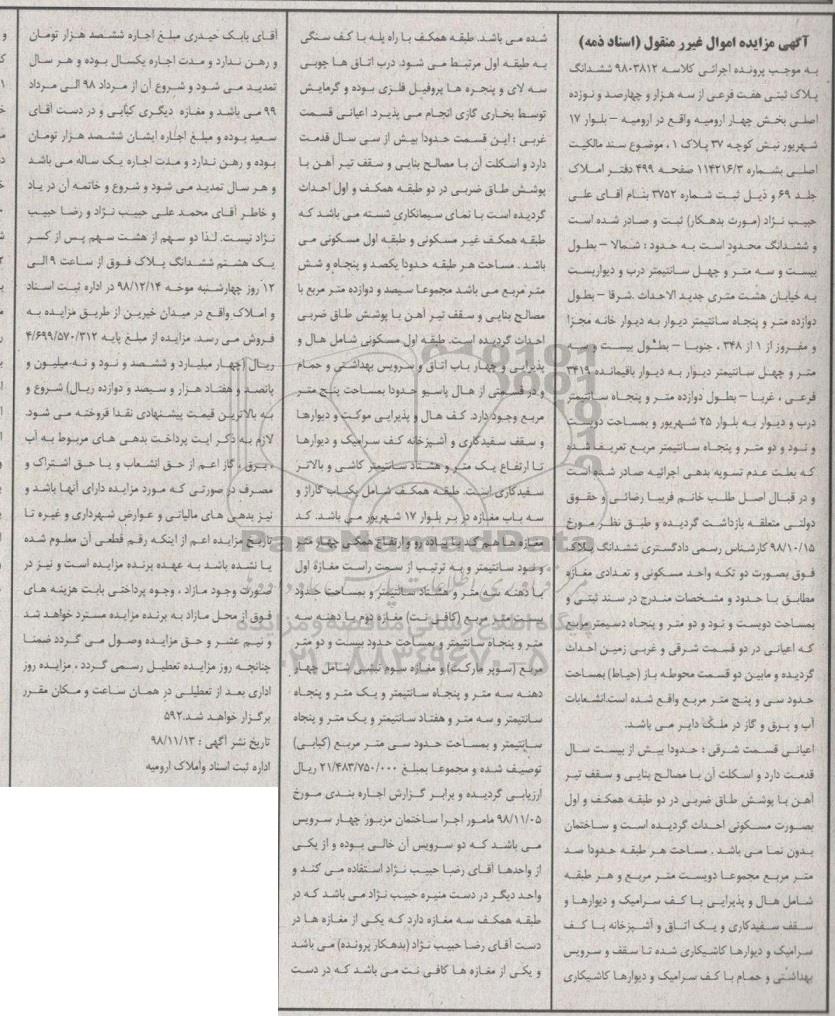 آگهی مزایده اموال غیرر منقول (اسناد ذمه)
به موجب پرونده اجرائی کلاسه ۹۸۰۳۸۱۲ ششدانگ
پلاک ثبتی هفت فرعی از سه هزار و چهارصد و نوزده
اصلی بخش چهار ارومیه واقع در ارومیه – بلوار ۱۷
شهریور نبش کوچه ۳۷ پلاک ۱ ، موضوع سند مالکیت
اصلی بشماره ۱۱۴۲۱۶/۳ صفحه ۴۹۹ دفتر املاک
جلد ۶۹ و ذیل ثبت شماره ۳۷۵۲ بنام آقای علی
حبیب نژاد (مورث بدهکار) ثبت و صادر شده است
و ششدانگ محدود است به حدود : شمالا – بطول
بیست و سه متر و چهل سانتیمتر درب و دیواریست
به خیابان هشت متری جدید الاحداث .شرقا – بطول
دوازده متر و پنجاه سانتیمتر دیوار به دیوار خانه مجزا
و مفروز از ۱ از ۳۴۸ ، جنوبا – بطول بیست و سه
متر و چهل سانتیمتر دیوار به دیوار باقیمانده ۳۴۱۹
فرعی ، غربا – بطول دوازده متر و پنجاه سانتیمتر
درب و دیوار به بلوار ۲۵ شهریور و بمساحت دویست
و نود و دو متر و پنجاه سانتیمتر مربع تعریف شده
که بعلت عدم تسویه بدهی اجرائیه صادر شده است
و در قبال اصل طلب خانم فریبا رضائی و حقوق
دولتی متعلقه بازداشت گردیده و طبق نظر مورخ
۹۸/۱۰/۱۵ کارشناس رسمی دادگستری ششدانگ پلاک
فوق بصورت دو تکه واحد مسکونی و تعدادی مغازه
مطابق با حدود و مشخصات مندرج در سند ثبتی و
بمساحت دویست و نود و دو متر و پنجاه دسیمتر مربع
که اعیانی در دو قسمت شرقی و غربی زمین احداث
گردیده و مابین دو قسمت محوطه باز (حیاط) بمساحت
حدود سی و پنج متر مربع واقع شده است.انشعابات
آب و برق و گاز در ملک دایر می باشد.
اعیانی قسمت شرقی : حدودا بیش از بیست سال
قدمت دارد و اسکلت آن با مصالح بنایی و سقف تیر
آهن با پوشش طاق ضربی در دو طبقه همکف و اول
بصورت مسکونی احداث گردیده است و ساختمان
بدون نما می باشد . مساحت هر طبقه حدودا صد
متر مربع مجموعا دویست متر مربع و هر طبقه
شامل هال و پذیرایی با کف سرامیک و دیوارها و
سقف سفیدکاری و یک اتاق و آشپزخانه با کف
سرامیک و دیوارها کاشیکاری شده تا سقف و سرویس
بهداشتی و حمام با کف سرامیک و دیوارها کاشیکاری
شده می باشد. طبقه همکف با راه پله با کف سنگی
به طبقه اول مرتبط می شود. درب اتاق ها چوبی
سه لای و پنجره ها پروفیل فلزی بوده و گرمایش
توسط بخاری گازی انجام می پذیرد. اعیانی قسمت
غربی : این قسمت حدودا بیش از سی سال قدمت
دارد و اسکلت آن با مصالح بنایی و سقف تیر آهن با
پوشش طاق ضربی در دو طبقه همکف و اول احداث
گردیده است با نمای سیمانکاری شسته می باشد که
طبقه همکف غیر مسکونی و طبقه اول مسکونی می
باشد . مساحت هر طبقه حدودا یکصد و پنجاه و شش
متر مربع می باشد مجموعا سیصد و دوازده متر مربع با
مصالح بنایی و سقف تیر آهن با پوشش طاق ضربی
احداث گردیده است. طبقه اول مسکونی شامل هال و
پذیرایی و چهار باب اتاق و سرویس بهداشتی و حمام
و در قسمتی از هال پاسیو حدودا بمساحت پنج متر
مربع وجود دارد. کف هال و پذیرایی موکت و دیوارها
و سقف سفیدکاری و آشپزخانه کف سرامیک و دیوارها
تا ارتفاع یک متر و هشتاد سانتیمتر کاشی و بالاتر
سفیدکاری است. طبقه همکف شامل یکباب گاراژ و
سه باب مغازه در بر بلوار ۱۷ شهریور می باشد. کد
مغازه ها هم کد با پیاده رو و ارتفاع همکی چهار متر
و نود سانتیمتر و به ترتیب از سمت راست مغازه اول
با دهنه سه متر و هشتاد سانتیمتر و بمساحت حدود
بیست متر مربع (کافی نت) مغازه دوم با دهنه سه
متر و پنجاه سانتیمتر و بمساحت حدود بیست و دو متر
مربع (سوپر مارکت) و مغازه سوم نبشی شامل چهار
دهنه سه متر و پنجاه سانتیمتر و یک متر و پنجاه
سانتیمتر و سه متر و هفتاد سانتیمتر و یک متر و پنجاه
سانتیمتر و بمساحت حدود سی متر مربع (کبابی)
توصیف شده و مجموعا بمبلغ ۲۱/۴۸۳/۷۵۰/۰۰۰ ریال
ارزیابی گردیده و برابر گزارش اجاره بندی مورخ
۹۸/۱۱/۰۵ مامور اجرا ساختمان مزبور چهار سرویس
می باشد که دو سرویس آن خالی بوده و از یکی
از واحدها آقای رضا حبیب نژاد استفاده می کند و
واحد دیگر در دست منیره حبیب نژاد می باشد که در
طبقه همکف سه مغازه دارد که یکی از مغازه ها در
دست آقای رضا حبیب نژاد (بدهکار پرونده) می باشد
و یکی از مغازه ها کافی نت می باشد که در دست
آقای بابک حیدری مبلغ اجاره ششصد هزار تومان
و رهن ندارد و مدت اجاره یکسال بوده و هر سال
تمدید می شود و شروع آن از مرداد ۹۸ الی مرداد
۹۹ می باشد و مغازه دیگری کبابی و در دست آقای
سعید بوده و مبلغ اجاره ایشان ششصد هزار تومان
بوده و رهن ندارد و مدت اجاره یک ساله می باشد
و هر سال تمدید می شود و شروع و خاتمه آن در یاد
و خاطر آقای محمد علی حبیب نژاد و رضا حبیب
نژاد نیست. لذا دو سهم از هشت سهم پس از کسر
یک هشتم ششدانگ پلاک فوق از ساعت ۹ الی
۱۲ روز چهارشنبه موخه ۹۸/۱۲/۱۴ در اداره ثبت اسناد
و املاک واقع در میدان خیرین از طریق مزایده به
فروش می رسد. مزایده از مبلغ پایه ۴/۶۹۹/۵۷۰/۳۱۲
ریال (چهار میلیارد و ششصد و نود و نه،میلیون و
پانصد و هفتاد هزار و سیصد و دوازده ریال) شروع و
به بالاترین قیمت پیشنهادی نقدا فروخته می شود.
لازم به ذکر ایت پرداخت بدهی های مربوط به آب
، برق ، گاز اعم از حق انشعاب و یا حق اشتراک و
مصرف در صورتی که مورد مزایده دارای آنها باشد و
نیز بدهی های مالیاتی و عوارض شهرداری و غیره تا
تاریخ مزایده اعم از اینکه رقم قطعی آن معلوم شده
یا نشده باشد به عهده برنده مزایده است و نیز در
صورت وجود مازاد ، وجوه پرداختی بابت هزینه های
فوق از محل مازاد به برنده مزایده مسترد خواهد شد
و نیم عشر و حق مزایده وصول می گردد ضمنا
چنانچه روز مزایده تعطیل رسمی گردد ، مزایده روز
اداری بعد از تعطیلی در همان ساعت و مکان مقرر
برگزار خواهد شد.۵۹۲
تاریخ نشر آگهی : ۹۸/۱۱/۱۳
اداره ثبت اسناد واملاک ارومیه
ParsNamadData
۰۲۱-۸۸۳۴۹۶۷۰-۵